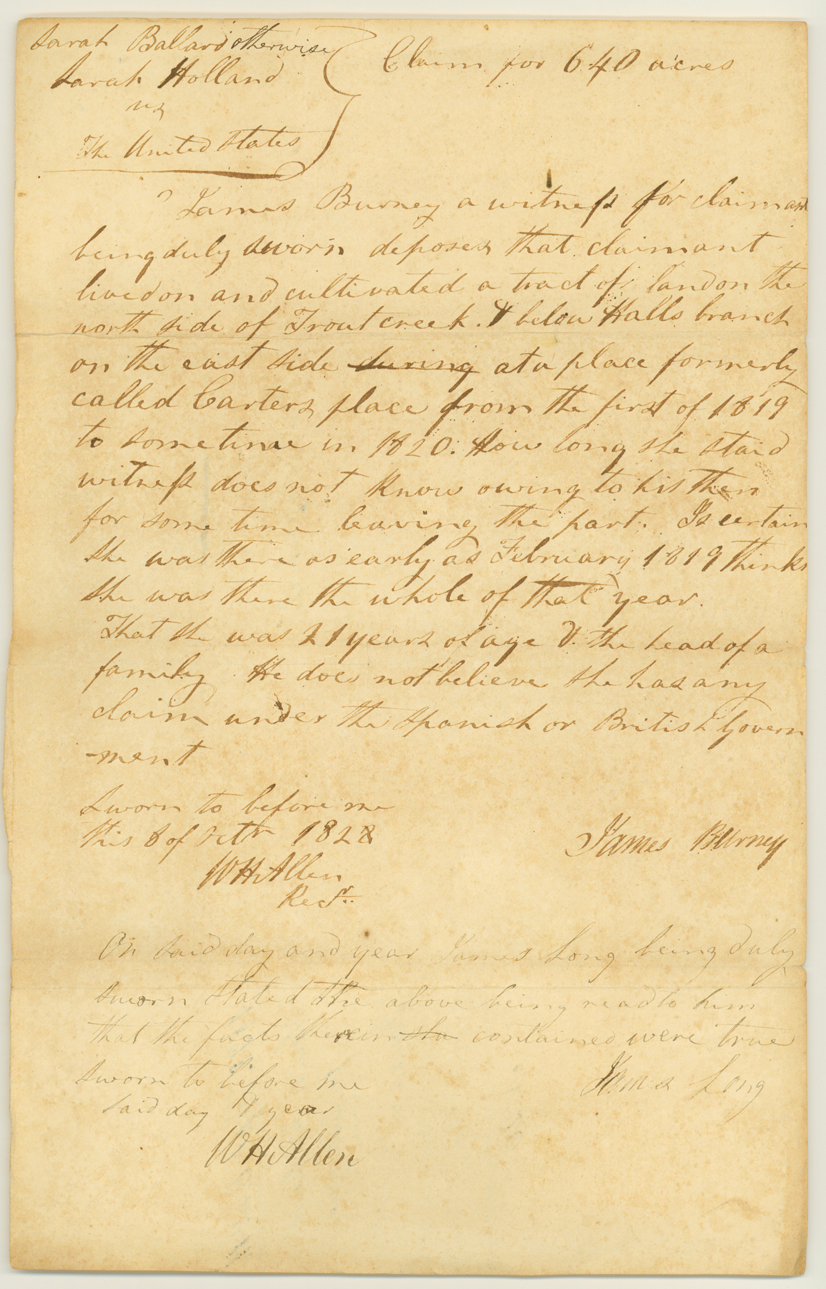 Sarah Ballard otherwise
Sarah Holland
vs
The United States
Claim for 640 acres
James Burney a witness for claimant
being duly sworn deposes that claimant
lived on and cultivated a tract of land on the
north side of Trout creek. & below Halls branch
on the east side during at a place formerly
called Carters place from the first of 1819
to sometime in 1820. How long she staid
witness does not know owing to his then
for some time leaving the part. Is certain
she was there as early as February 1819 thinks
she was there the whole of that year.
That she was 21 years of age & the head of a
family He does not believe she has any
claim under the Spanish or British Govern
-ment
Sworn to before me
this 8 of 1828
James Burney
WH Allen
On said day and year James Long being duly
sworn stated the above being read to him
that the facts therein contained were true
Sworn to before me
James Long
said day & year
WH Allen